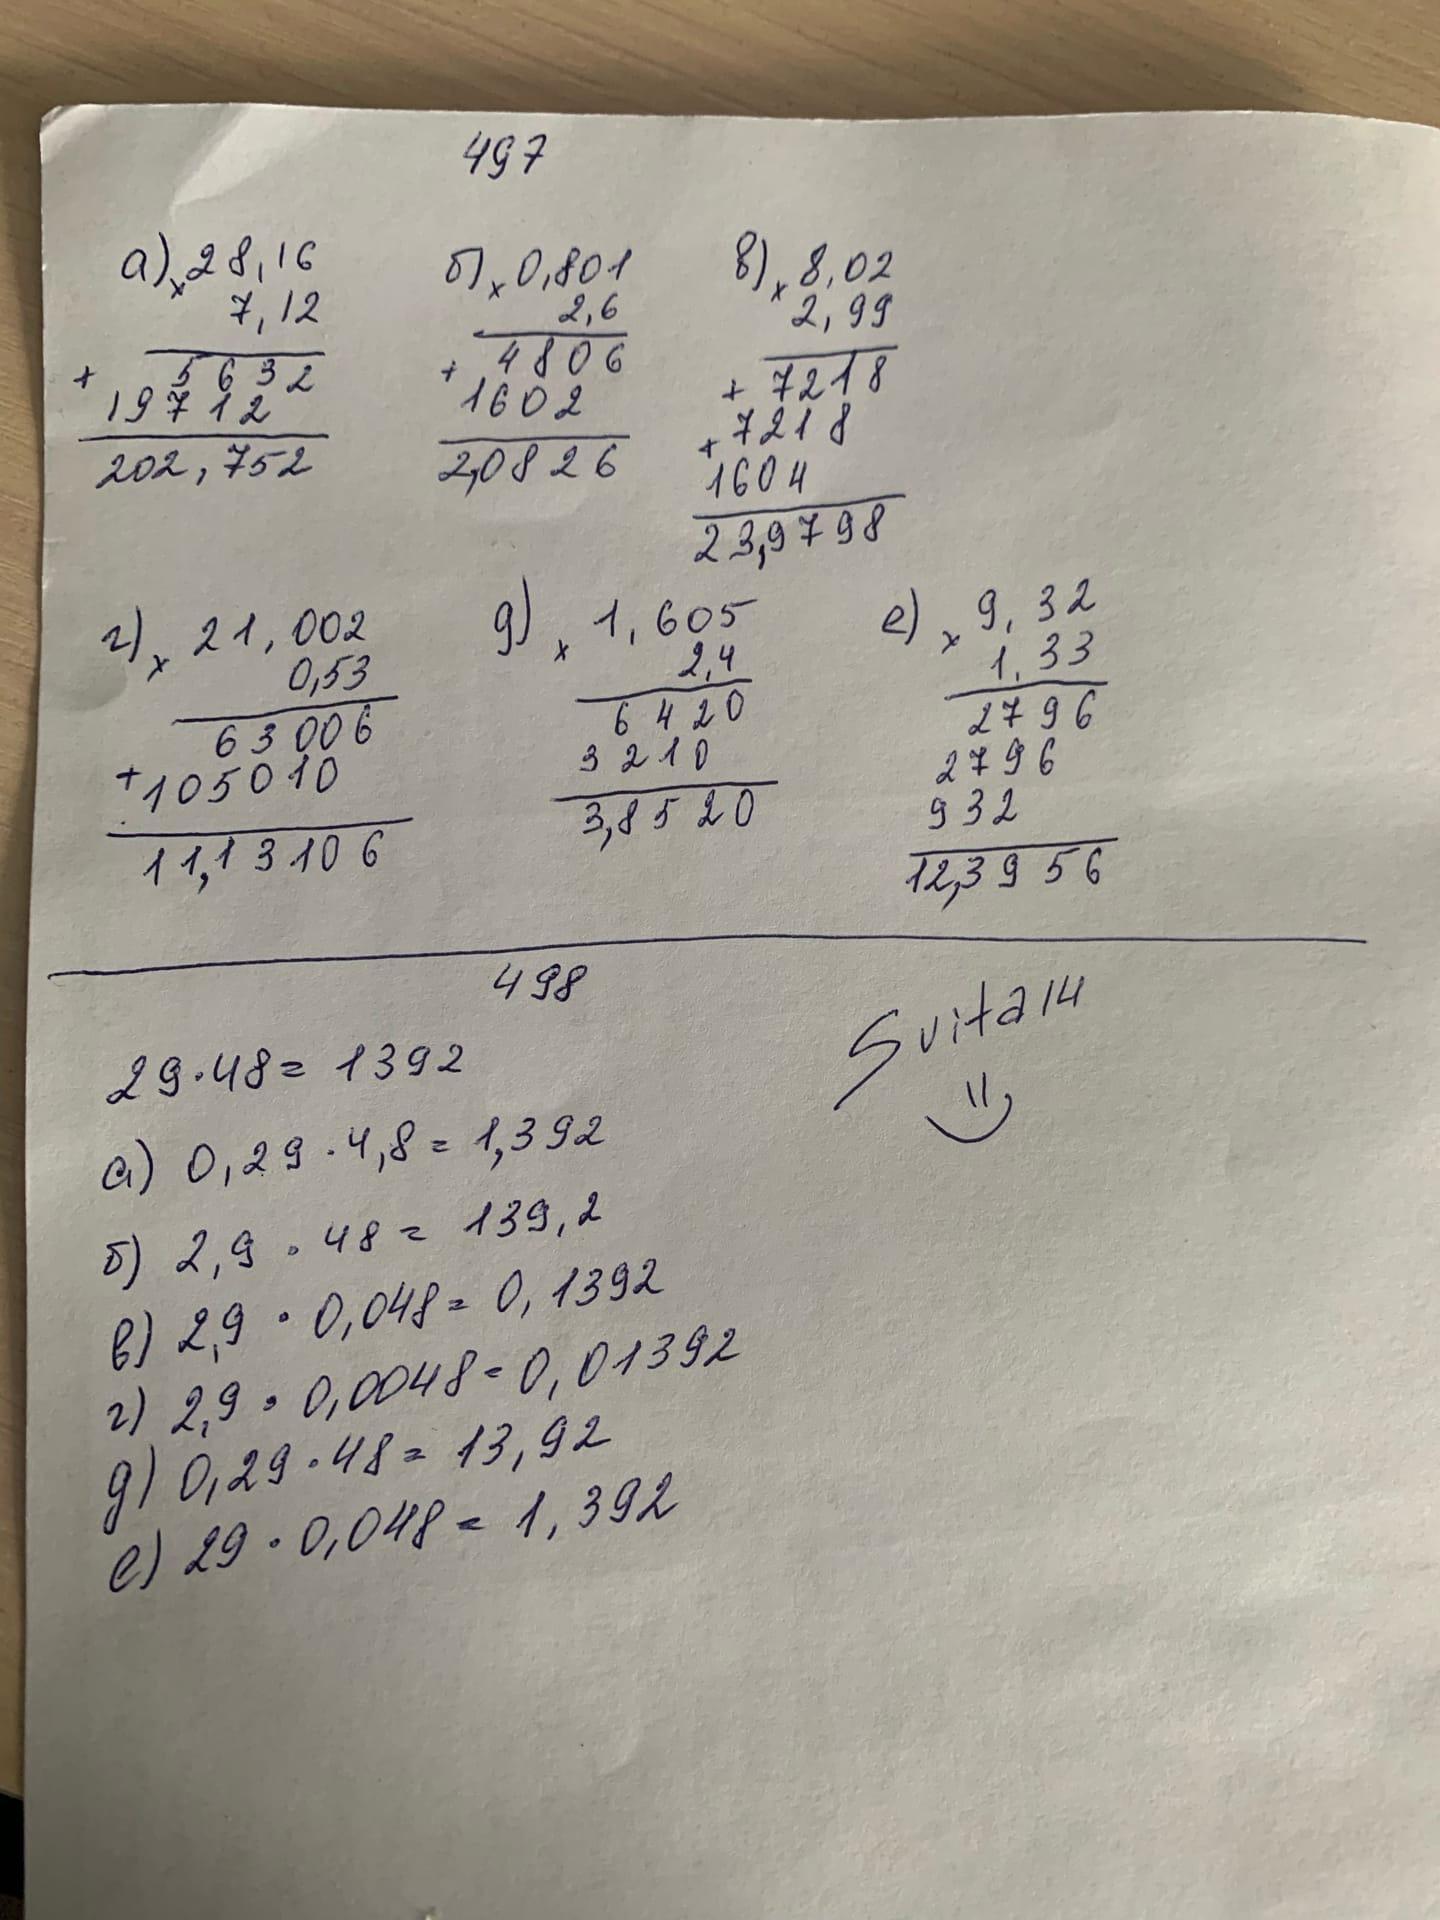 497
а) × 28,16
7,12
+ 5632
19712
202,752
б) × 0,801
2,6
+ 4806
1602
2,0826
в) × 8,02
2,99
+ 7218
+ 7218
1604
23,9798
г) × 21,002
0,53
63006
+ 105010
11,13106
д) × 1,605
2,4
6420
3210
3,8520
е) × 9,32
1,33
2796
2796
932
12,3956
498
Svita14
29·48= 1392
а) 0,29·4,8= 1,392
б) 2,9·48= 139,2
в) 2,9·0,048= 0,1392
г) 2,9·0,0048= 0,01392
д) 0,29·48= 13,92
е) 29·0,048= 1,392